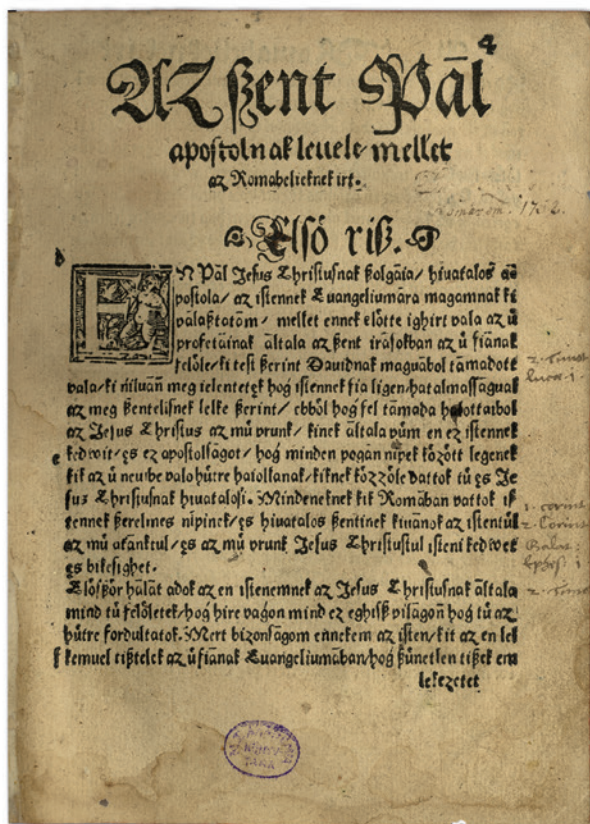 4
AZ ßent Pāl
apostolnak leuele mellet
az Romabelieknek irt.
Elsö riß.
EN Pāl Jesus Christusnak ßolgāia/ hiuatalos
postola/ az istennek Euangeliumāra magamnak ki
vālaßtatām/ mellet ennek elötte ighirt vala az ů
profetāinak āltala az ßent irāsokban az ů fiānak
felöle/ ki test ßerint Dauidnak maguābol tāmadott
vala/ ki ńiluān meg ielentetęk hoǵ istennek fia liǵen/ hatalmassāguāl
az meg ßentelisnek lelke ßerint/ ebböl hoǵ fel tāmada halottaibol
az Jesus Christus az mů vrunk/ kinek āltala vům en ez istennek
kedwit/ ęs ez apostolsāgot/ hoǵ minden pogań nipek között legenek
kik az ů neuibe valo hůtre haiollanak/ kiknek közzöle vattok tů ęs Je
sus Christusnak hiuatalosi. Mindeneknek kik Romāban vattok is
tennek ßerelmes nipinek/ ęs hiuatalos ßentinek kiuānok az istentůl
az mů atānktul/ ęs az mů vrunk Jesus Christustul isteni kedwet
ęs bikesighet.
Elößßör hālāt adok az en istenemnek az Jesus Christusnak āltala
mind tů felöletek/ hoǵ hire vaǵon mind ez eghiß vilāgoń hoǵ tů az
hůtre fordultatok. Mert bizonsāgom ennekem az isten/ kit az en lel
kemuel tißtelek az ů fiānak Euangeliumāban/ hoǵ ßůnetlen tißek em
lekezetet